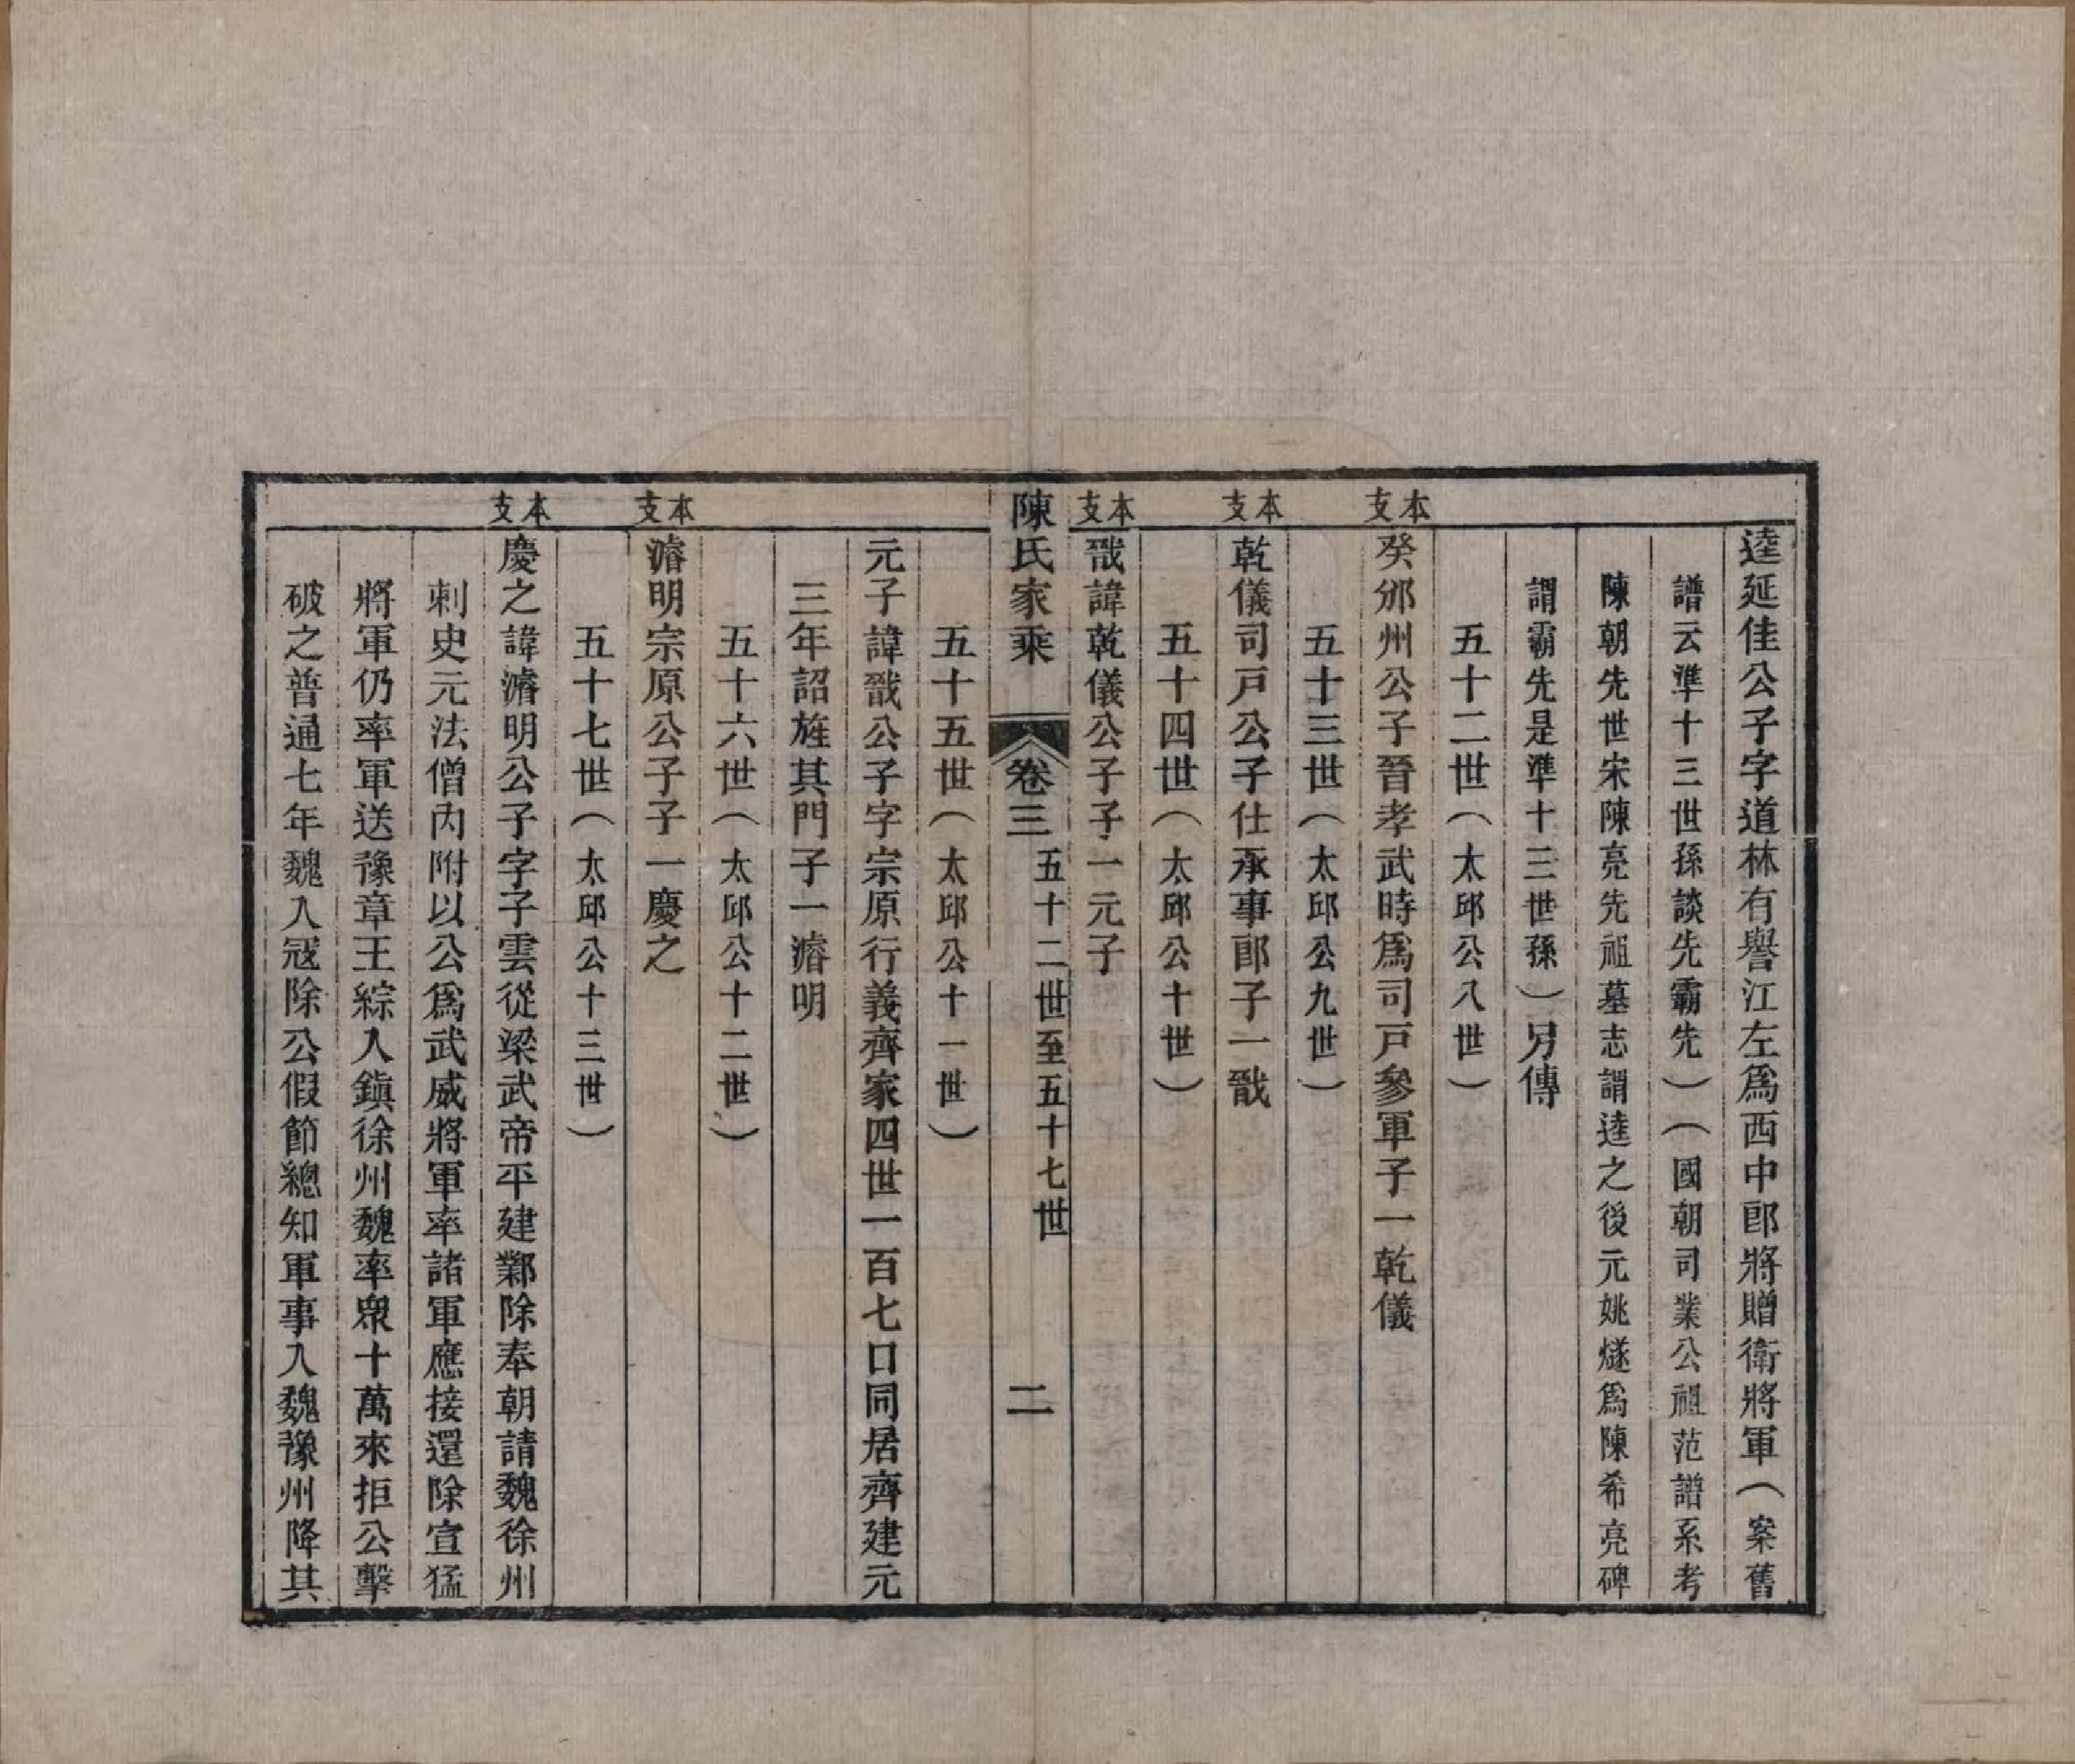 逵延佳公子字道林有譽江左爲西中郎將贈衛將軍（案舊
譜云準十三世孫談先霸先）（國朝司業公祖范譜系考
陳朝先世宋陳亮先祖墓志謂逵之後元姚燧爲陳希亮碑
謂霸先是準十三世孫）另傳
五十二世（太邱公八世）
本支
癸邠州公子晉孝武時爲司戸參軍子一乾儀
五十三世（太邱公九世）
本支
乾儀司戸公子仕承事郎子一戩
五十四世（太邱公十世）
本支
戩諱乾儀公子子一元子
陳氏家乘 卷三 五十二世至五十七世 二
五十五世（太邱公十一世）
元子諱戩公子字宗原行義齊家四世一百七口同居齊建元
三年詔旌其門子一濬明
五十六世（太邱公十二世）
本支
濬明宗原公子子一慶之
五十七世（太邱公十三世）
本支
慶之諱濬明公子字子雲從梁武帝平建鄴除奉朝請魏徐州
刺史元法僧內附以公爲武威將軍率諸軍應接還除宣猛
將軍仍率軍送豫章王綜入鎭徐州魏率衆十萬來拒公擊
破之普通七年魏入寇除公假節總知軍事入魏豫州降其